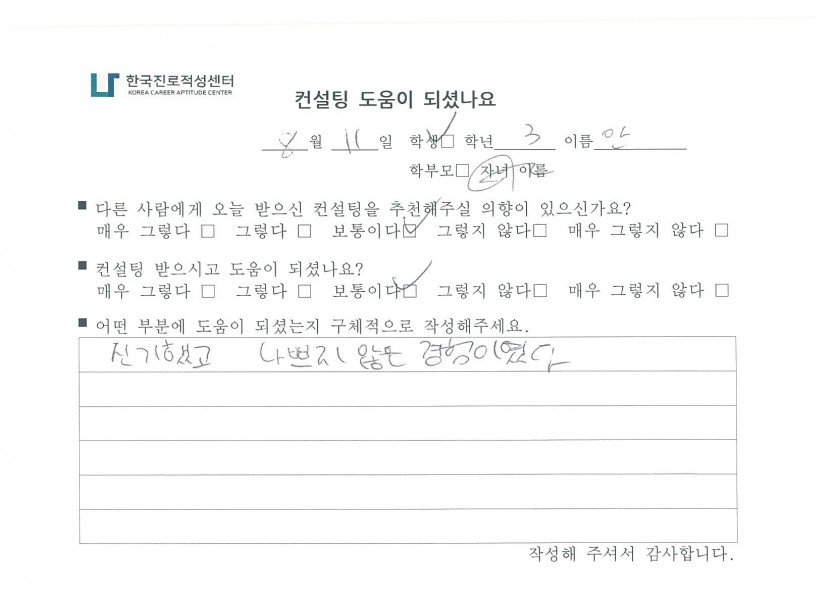 한국진로적성센터
KOREA CAREER APTITUDE CENTER
컨설팅 도움이 되셨나요
8월 11일 학생□ 학년 3 이름 안
학부모□ 자녀 이름
■ 다른 사람에게 오늘 받으신 컨설팅을 추천해주실 의향이 있으신가요?
매우 그렇다 □ 그렇다 □ 보통이다☑ 그렇지 않다□ 매우 그렇지 않다 □
■ 컨설팅 받으시고 도움이 되셨나요?
매우 그렇다 □ 그렇다 □ 보통이다☑ 그렇지 않다□ 매우 그렇지 않다 □
■ 어떤 부분에 도움이 되셨는지 구체적으로 작성해주세요.
신기했고 나쁘지 않은 경험이였다
작성해 주셔서 감사합니다.